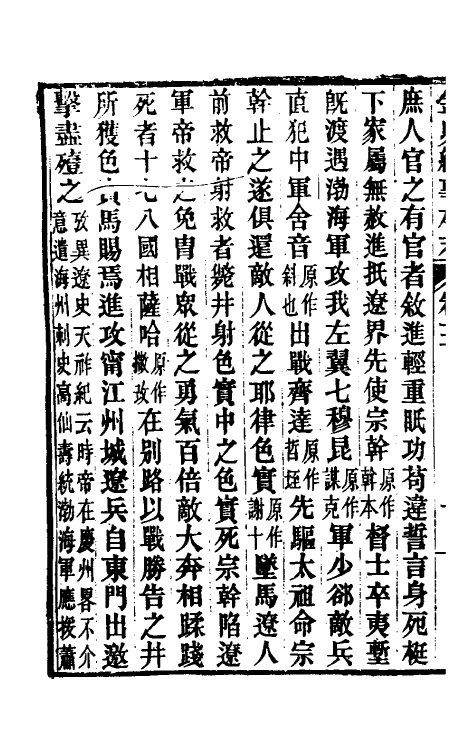 庶人官之有官者敘進輕重眂功茍違誓言身死梃
下家屬無赦進抵遼界先使宗幹原作斡本督士卒夷塹
旣渡遇渤海軍攻我左翼七穆昆原作謀克軍少郤敵兵
直犯中軍舍音原作斜也出戰齊達原作哲垤先驅太祖命宗
幹止之遂俱還敵人從之耶律色實原作謝十墜馬遼人
前救帝射救者斃幷射色實中之色實死宗幹陷遼
軍帝救之免冑戰眾從之勇氣百倍敵大奔相蹂踐
死者十七八國相薩哈原作撒改在別路以戰勝告之幷
所獲色實馬賜焉進攻甯江州城遼兵自東門出邀
擊盡殪之攷異遼史天祚紀云時帝在慶州畧不介意遣海州刺史高仙壽統渤海軍應援蕭